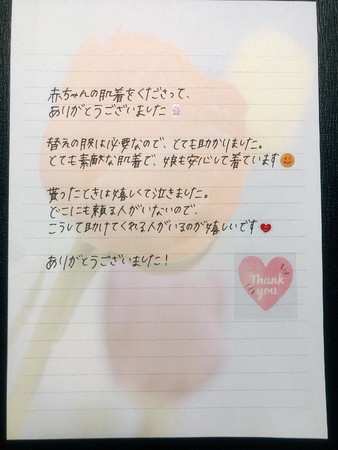 赤ちゃんの肌着をくださって、
ありがとうございました
替えの服は必要なので、とても助かりました。
とても素敵な肌着で、娘も安心して着ています
貰ったときは嬉しくて泣きました。
どこにも頼る人がいないので、
こうして助けてくれる人がいるのが嬉しいです
ありがとうございました!
Thank
you